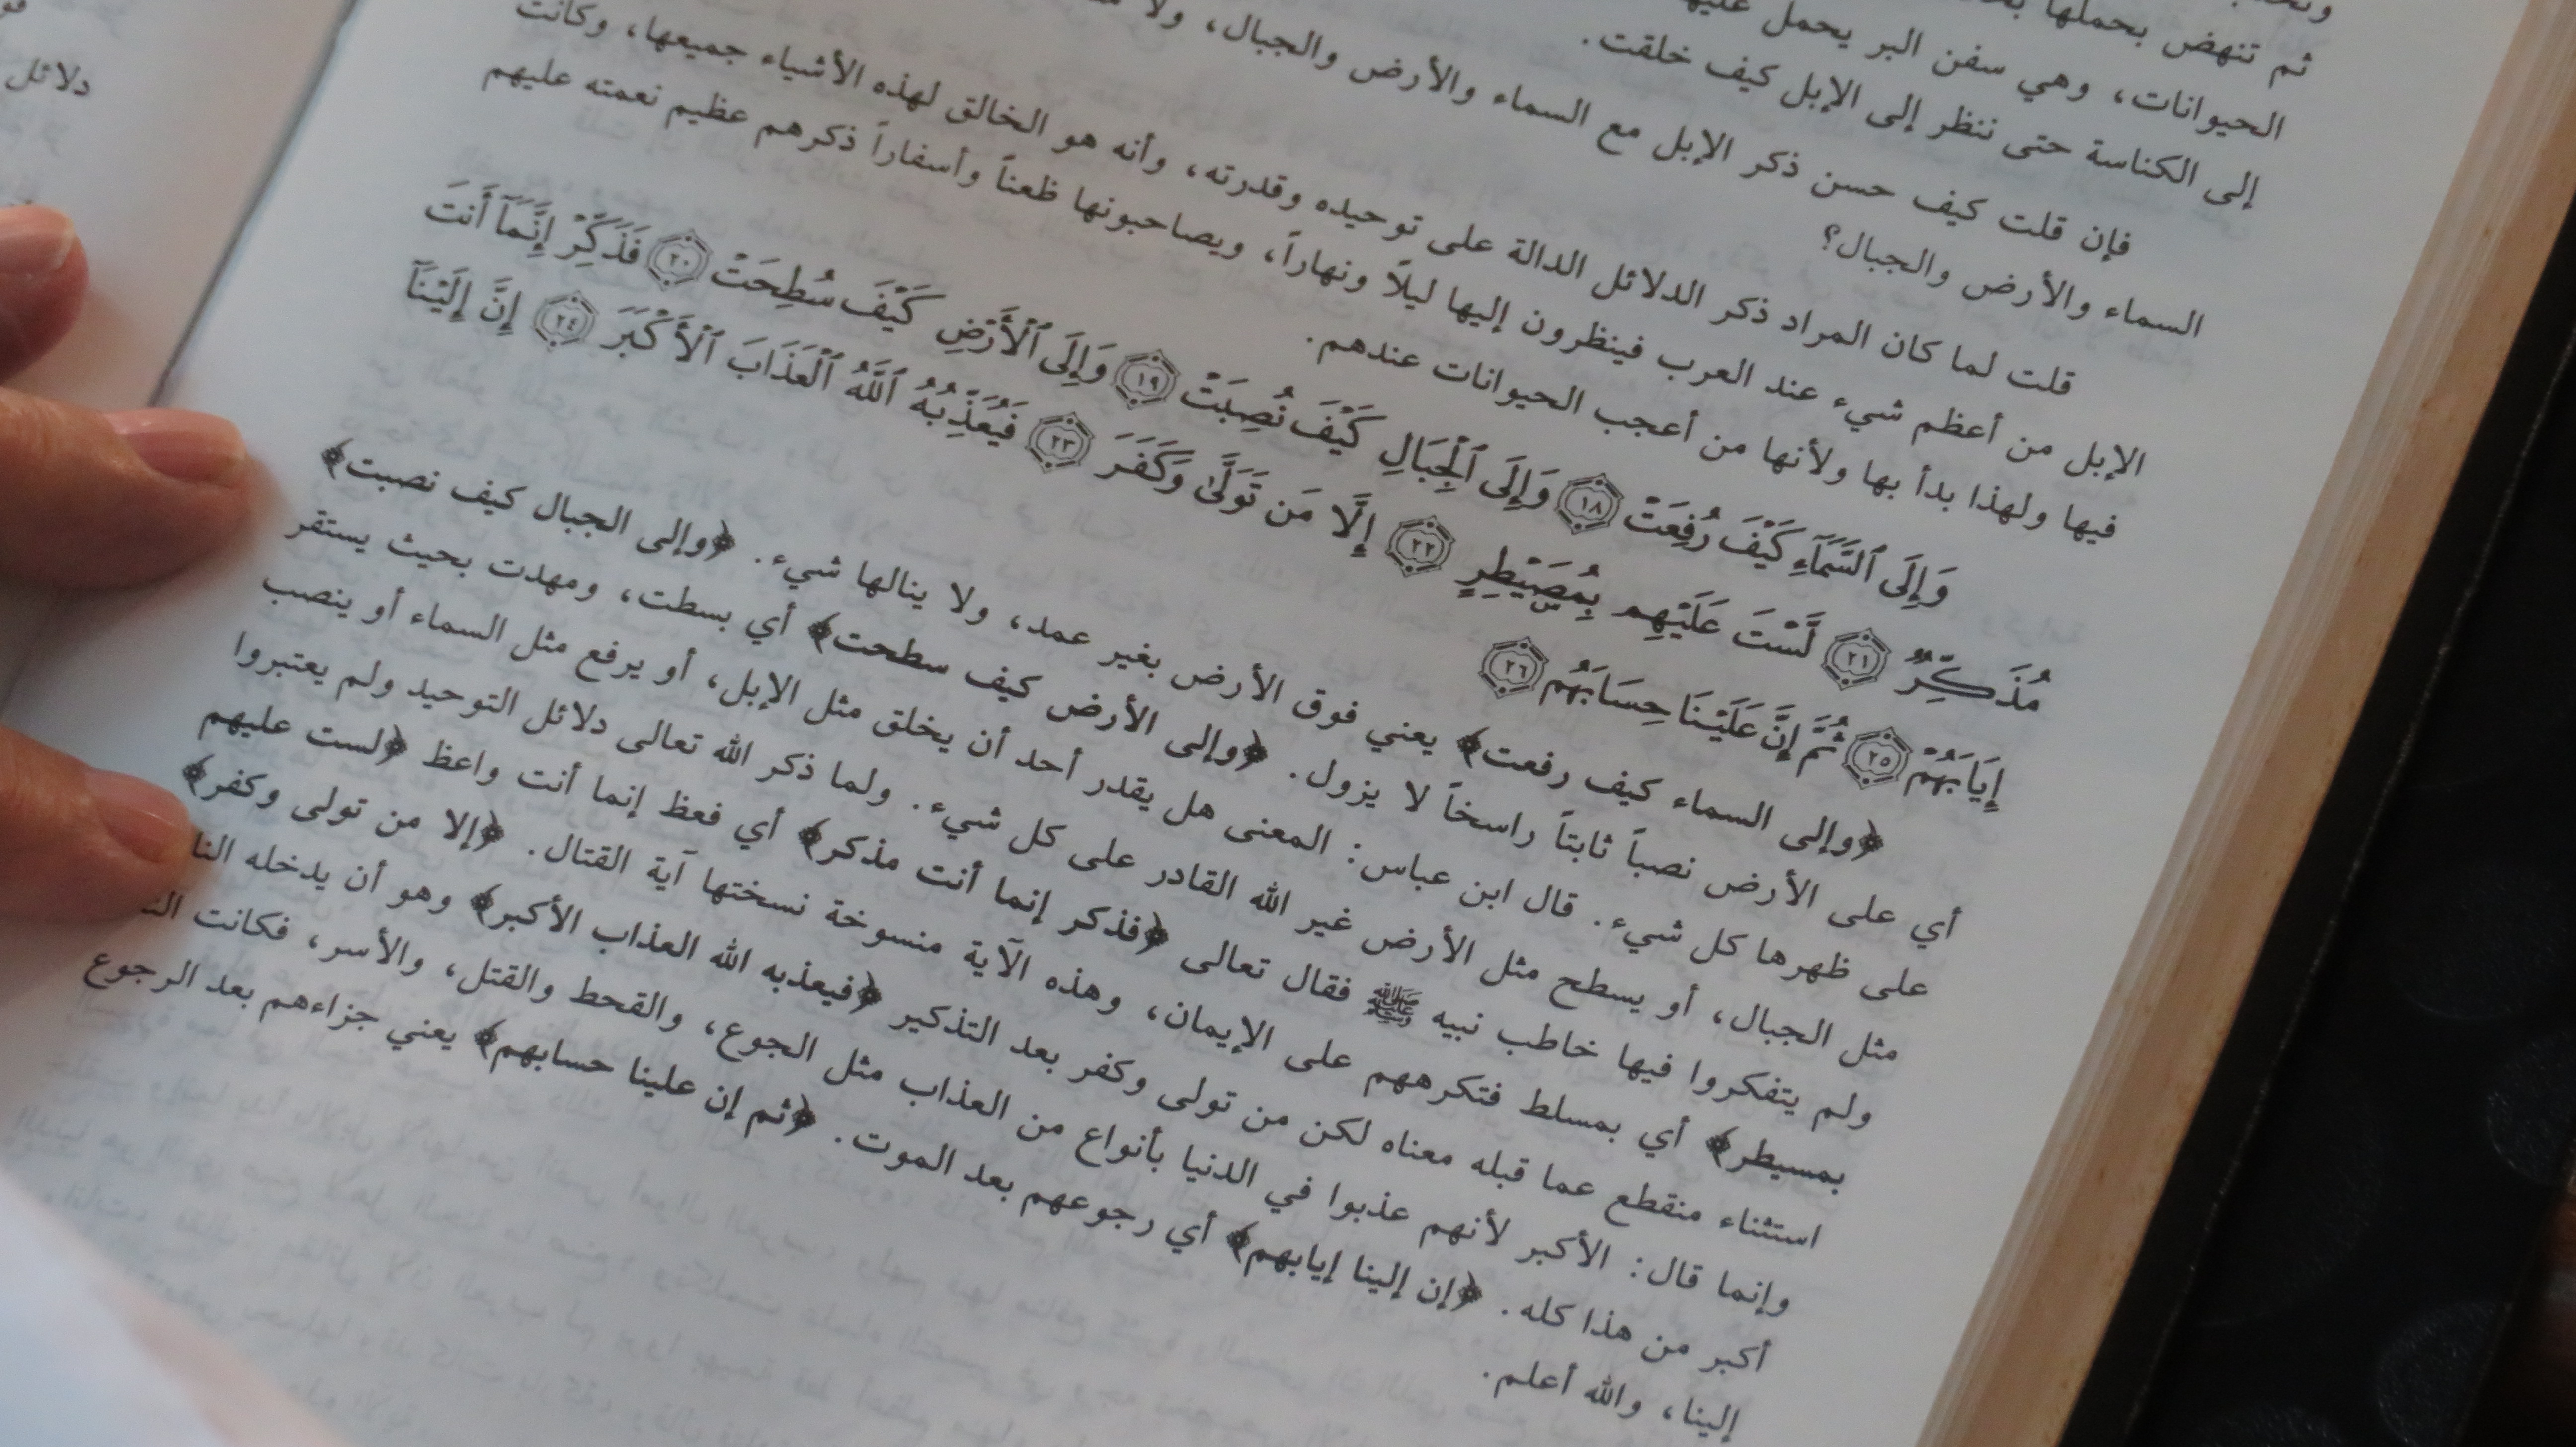 ثم تنهض بحملها
الحيوانات، وهي سفن البر يحمل عليها
إلى الكناسة حتى ننظر إلى الإبل كيف خلقت.
فإن قلت كيف حسن ذكر الإبل مع السماء والأرض والجبال، ولا
السماء والأرض والجبال؟
قلت لما كان المراد ذكر الدلائل الدالة على توحيده وقدرته، وأنه هو الخالق لهذه الأشياء جميعها، وكانت
الإبل من أعظم شيء عند العرب فينظرون إليها ليلاً ونهاراً، ويصاحبونها ظعناً وأسفاراً ذكرهم عظيم نعمته عليهم
فيها ولهذا بدأ بها ولأنها من أعجب الحيوانات عندهم.
وَإِلَى ٱلسَّمَآءِ كَيْفَ رُفِعَتْ ١٨ وَإِلَى ٱلْجِبَالِ كَيْفَ نُصِبَتْ ١٩ وَإِلَى ٱلْأَرْضِ كَيْفَ سُطِحَتْ ٢٠ فَذَكِّرْ إِنَّمَآ أَنتَ
مُذَكِّرٌ ٢١ لَّسْتَ عَلَيْهِم بِمُصَيْطِرٍ ٢٢ إِلَّا مَن تَوَلَّىٰ وَكَفَرَ ٢٣ فَيُعَذِّبُهُ ٱللَّهُ ٱلْعَذَابَ ٱلْأَكْبَرَ ٢٤ إِنَّ إِلَيْنَآ
إِيَابَهُمْ ٢٥ ثُمَّ إِنَّ عَلَيْنَا حِسَابَهُم ٢٦
﴿وإلى السماء كيف رفعت﴾ يعني فوق الأرض بغير عمد، ولا ينالها شيء. ﴿وإلى الجبال كيف نصبت﴾
أي على الأرض نصباً ثابتاً راسخاً لا يزول. ﴿وإلى الأرض كيف سطحت﴾ أي بسطت، ومهدت بحيث يستقر
على ظهرها كل شيء. قال ابن عباس: المعنى هل يقدر أحد أن يخلق مثل الإبل، أو يرفع مثل السماء أو ينصب
مثل الجبال، أو يسطح مثل الأرض غير الله القادر على كل شيء. ولما ذكر الله تعالى دلائل التوحيد ولم يعتبروا
ولم يتفكروا فيها خاطب نبيه ﷺ فقال تعالى ﴿فذكر إنما أنت مذكر﴾ أي فعظ إنما أنت واعظ ﴿لست عليهم
بمسيطر﴾ أي بمسلط فتكرههم على الإيمان، وهذه الآية منسوخة نسختها آية القتال. ﴿إلا من تولى وكفر﴾
استثناء منقطع عما قبله معناه لكن من تولى وكفر بعد التذكير ﴿فيعذبه الله العذاب الأكبر﴾ وهو أن يدخله
وإنما قال: الأكبر لأنهم عذبوا في الدنيا بأنواع من العذاب مثل الجوع، والقحط والقتل، والأسر، فكانت
أكبر من هذا كله. ﴿إن إلينا إيابهم﴾ أي رجوعهم بعد الموت. ﴿ثم إن علينا حسابهم﴾ يعني جزاءهم بعد الرجوع
إلينا، والله أعلم.
دلائل